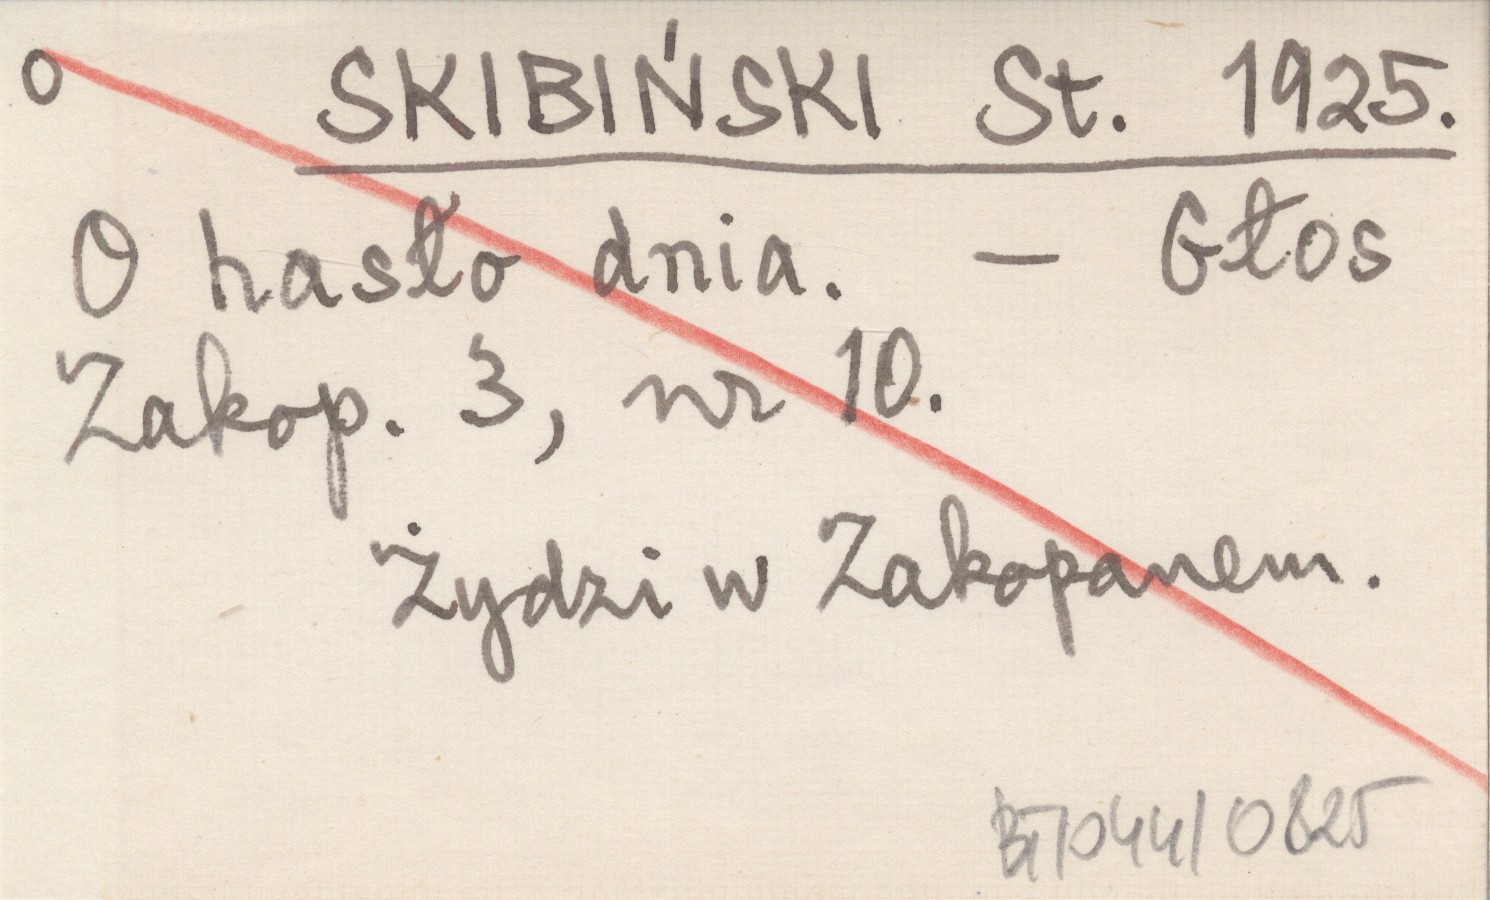 O SKIBIŃSKI St. 1925.
O hasło dnia. — Głos
Zakop. 3, nr 10.
Żydzi w Zakopanem.
BT/044/0825